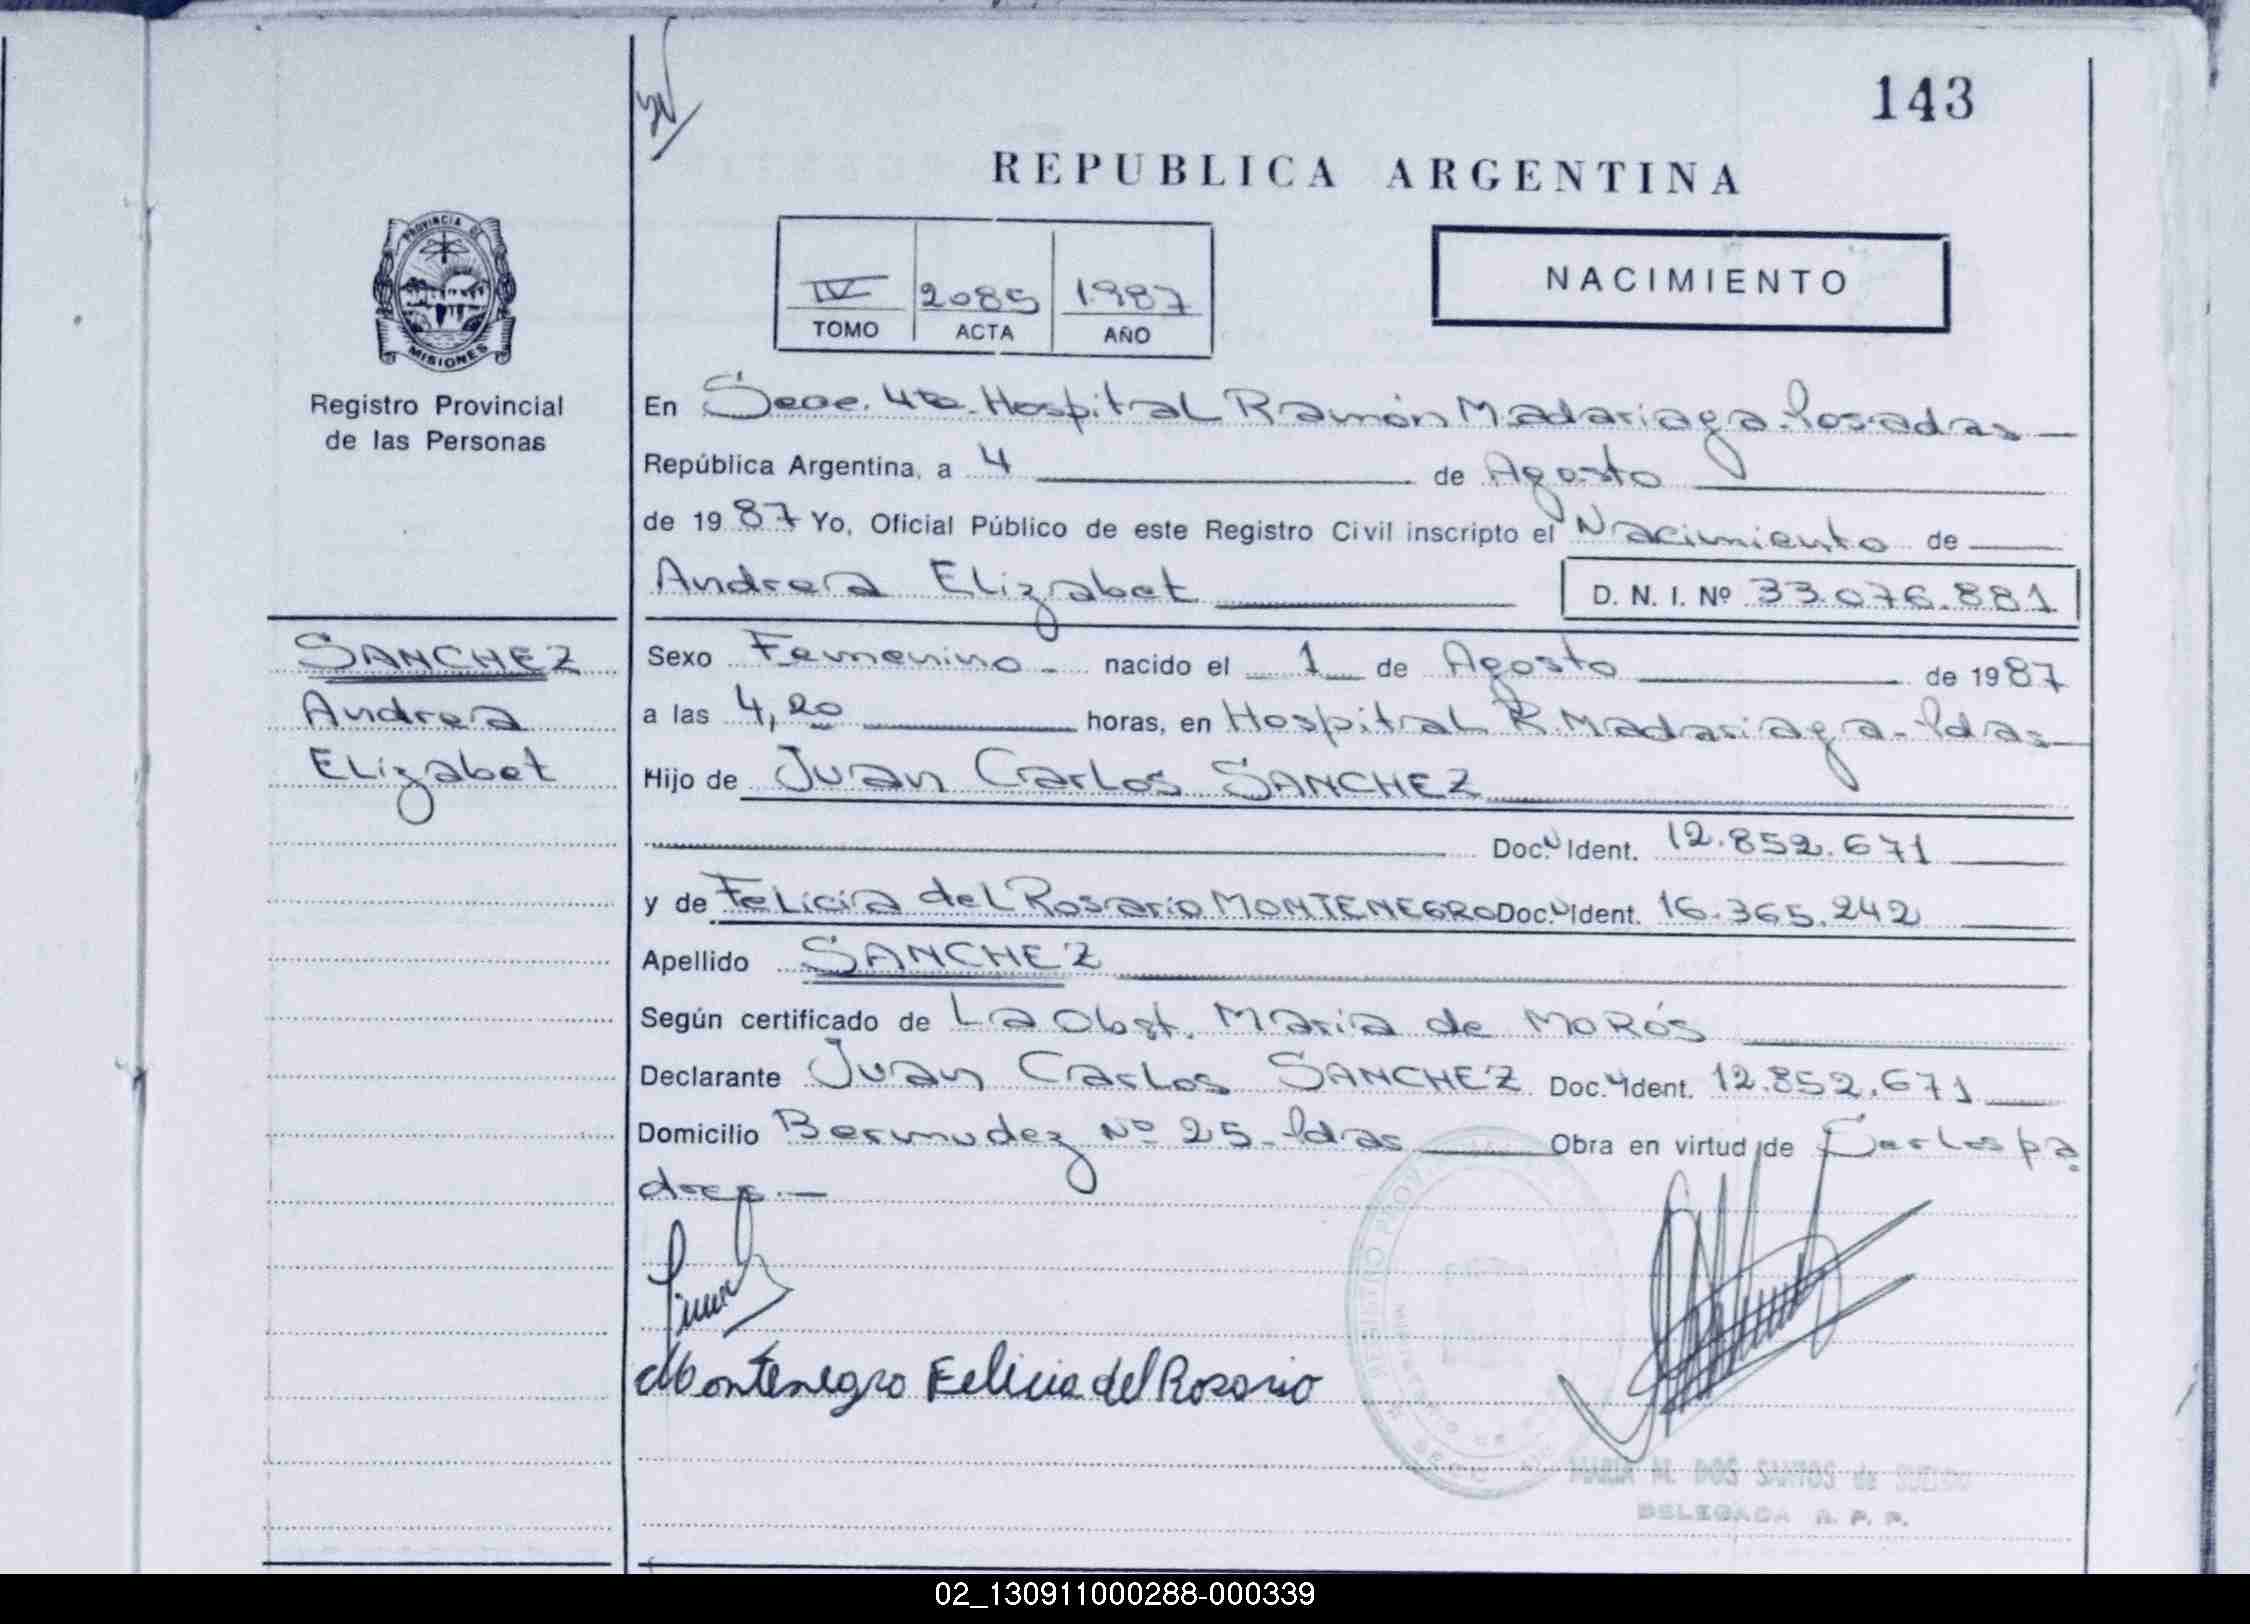 143
REPUBLICA ARGENTINA
PROVINCIA DE
MISIONES
Registro Provincial
de las Personas
IV 2085 1987
TOMO ACTA AÑO
NACIMIENTO
En Secc. 4ta. Hospital Ramón Madariaga. Posadas
República Argentina, a 4 de Agosto
de 1987 Yo, Oficial Público de este Registro Civil inscripto el Nacimiento de
Andrea Elizabet D. N. I. Nº 33.076.881
SANCHEZ
Andrea
Elizabet
Sexo Femenino - nacido el 1 de Agosto de 1987
a las 4,20 horas, en Hospital R. Madariaga - Pdas
Hijo de Juan Carlos SANCHEZ
Doc. Ident. 12.852.671
y de Felicia del Rosario MONTENEGRO Doc. Ident. 16.365.242
Apellido SANCHEZ
Según certificado de La Obst. Maria de MoRós
Declarante Juan Carlos SANCHEZ Doc. Ident. 12.852.671
Domicilio Bermudez Nº 25 - Pdas Obra en virtud de Ser los pa
dres.
Montenegro Felicia del Rosario
MARIA M. DOS SANTOS de
DELEGADA R. P. P.
02_130911000288-000339